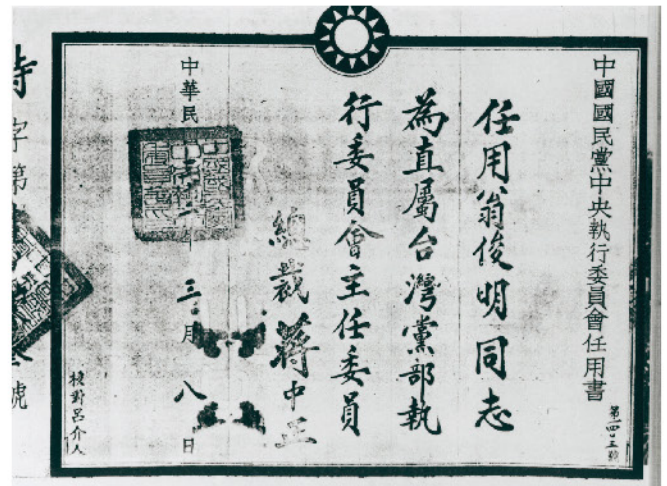 中國國民黨中央執行委員會任用書
任用翁俊明同志
為直屬台灣黨部執
行委員會主任委員
總裁 蔣中正
中華民
三月八日
校對呂介人
字第
號